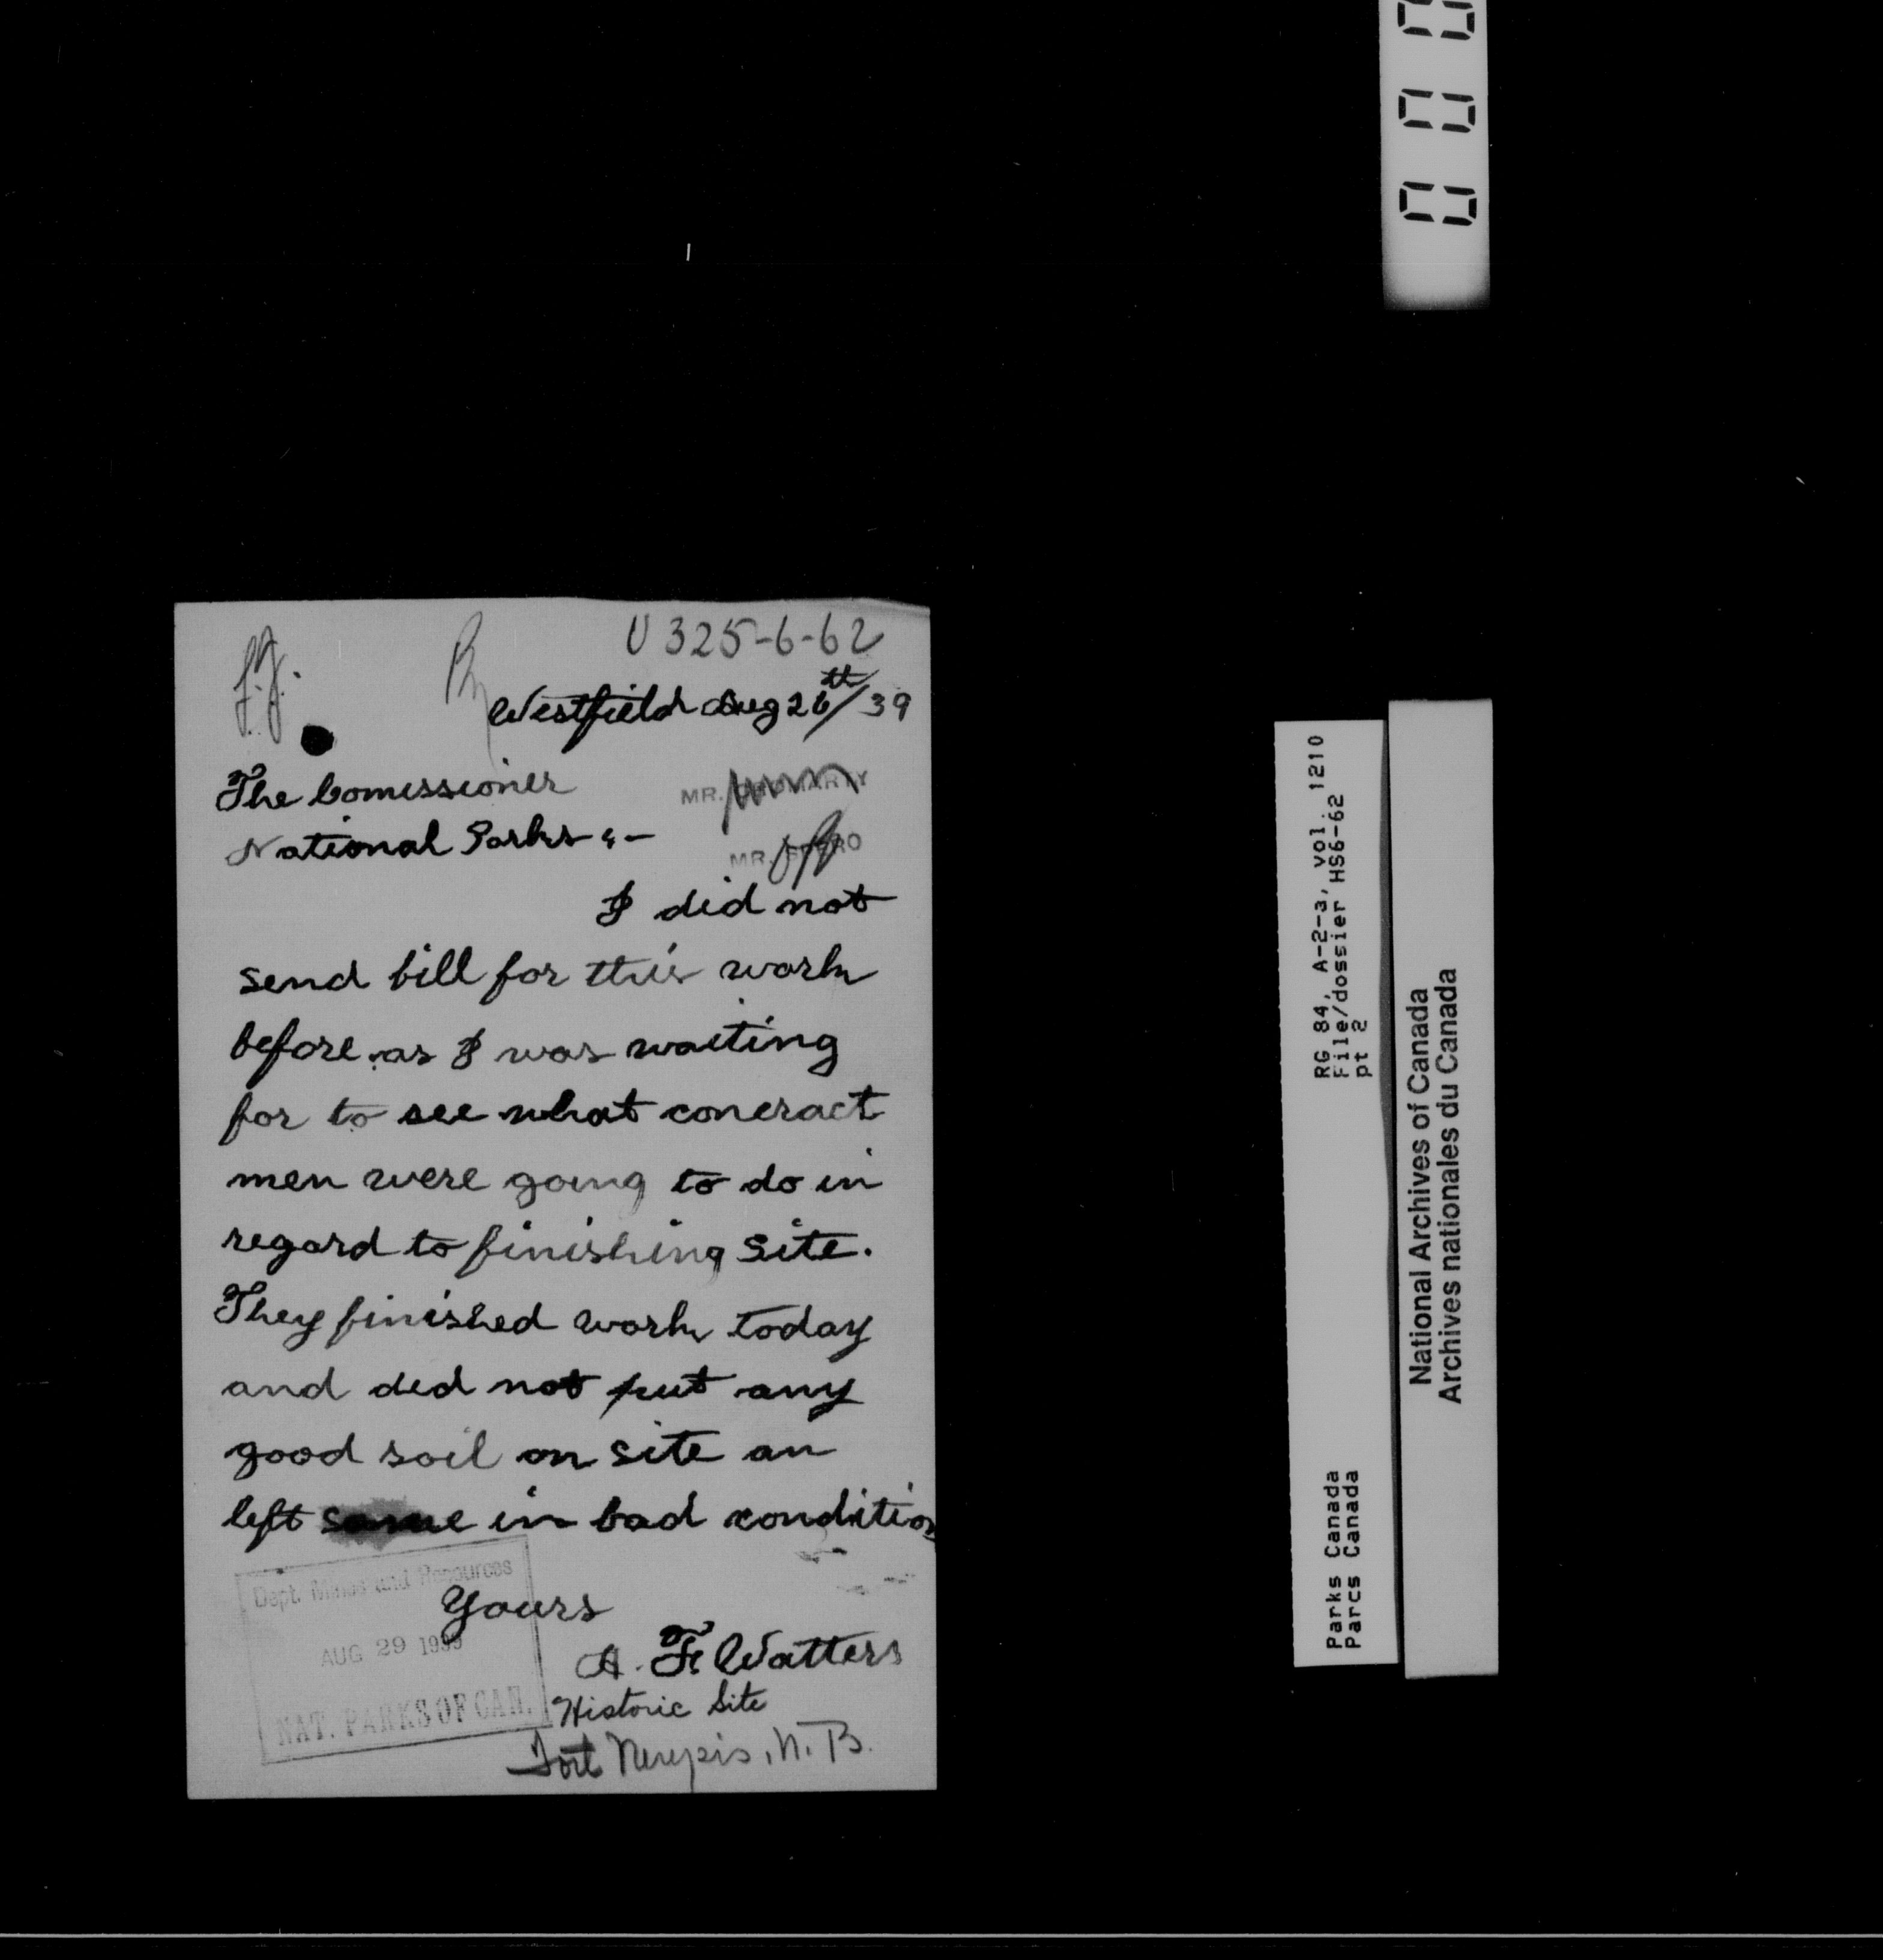 U 325-6-62
Westfield Aug 26th/39
The Comissioner
MR. CROMARTY
National Parks &-
MR. SPERO
I did not
send bill for this work
before as I was waiting
for to see what coneract
men were going to do in
regard to finishing site.
They finished work today
and did not put any
good soil on site an
left same in bad condition
Yours
A. F. Watters
Historic Site
Fort Nerepis, N.B.
Dept. Mines and Resources
AUG 29 1939
NAT. PARKS OF CAN.
RG 84, A-2-3, vol. 1210
File/dossier HS6-62
pt 2
Parks Canada
Parcs Canada
National Archives of Canada
Archives nationales du Canada